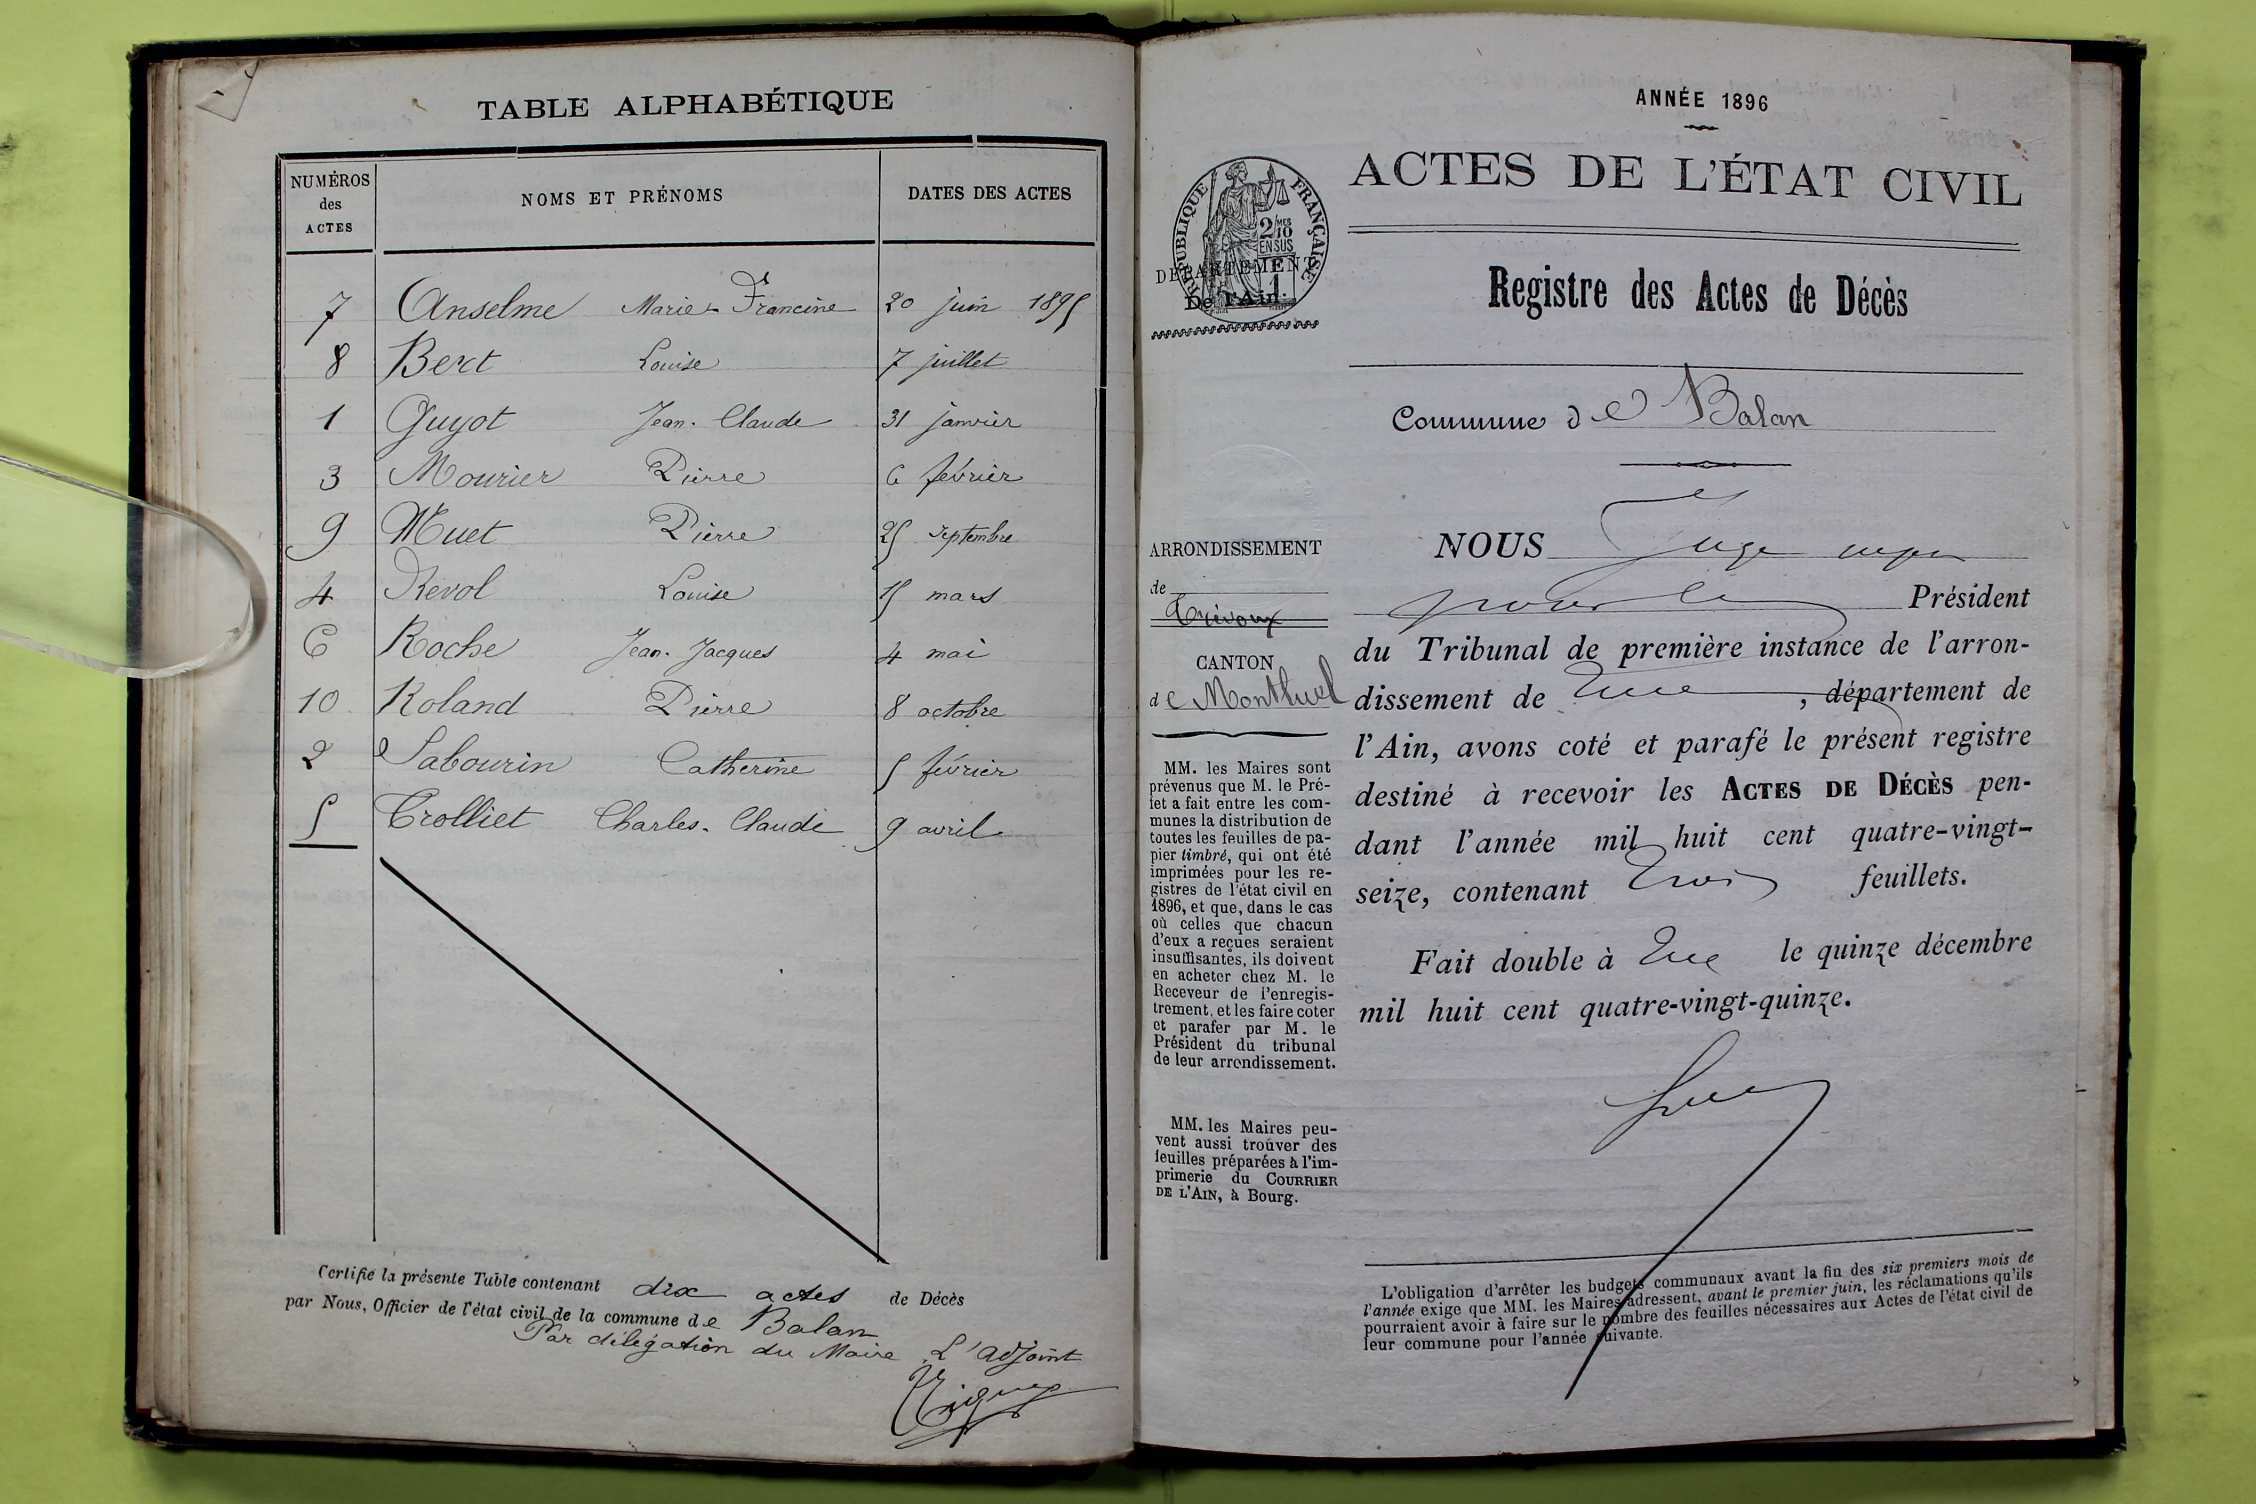 TABLE ALPHABÉTIQUE
NUMÉROS des ACTES NOMS ET PRÉNOMS DATES DES ACTES
7 Anselme Marie Francine 20 juin 1895
8 Berct Louise 7 juillet
1 Guyot Jean-Claude 31 janvier
3 Mourier Pierre 6 février
9 Muet Pierre 25 septembre
4 Revol Louise 15 mars
6 Roche Jean-Jacques 4 mai
10 Roland Pierre 8 octobre
2 Sabourin Catherine 5 février
5 Trolliet Charles-Claude 9 avril
Certifié la présente Table contenant dix actes de Décès
par Nous, Officier de l'état civil de la commune de Balan
Par délégation du Maire L'adjoint
ANNÉE 1896
ACTES DE L'ÉTAT CIVIL
RÉPUBLIQUE FRANÇAISE
2/10 MES
EN SUS
DÉPARTEMENT
De l'Ain.
Registre des Actes de Décès
Commune de Balan
ARRONDISSEMENT
de
Trévoux
CANTON
de Montluel
MM. les Maires sont
prévenus que M. le Pré-
fet a fait entre les com-
munes la distribution de
toutes les feuilles de pa-
pier timbré, qui ont été
imprimées pour les re-
gistres de l'état civil en
1896, et que, dans le cas
où celles que chacun
d'eux a reçues seraient
insuffisantes, ils doivent
en acheter chez M. le
Receveur de l'enregis-
trement, et les faire coter
et parafer par M. le
Président du tribunal
de leur arrondissement.
MM. les Maires peu-
vent aussi trouver des
feuilles préparées à l'im-
primerie du COURRIER
DE L'AIN, à Bourg.
NOUS Juge
pour le Président
du Tribunal de première instance de l'arron-
dissement de , département de
l'Ain, avons coté et parafé le présent registre
destiné à recevoir les ACTES DE DÉCÈS pen-
dant l'année mil huit cent quatre-vingt-
seize, contenant trois feuillets.
Fait double à le quinze décembre
mil huit cent quatre-vingt-quinze.
L'obligation d'arrêter les budgets communaux avant la fin des six premiers mois de
l'année exige que MM. les Maires adressent, avant le premier juin, les réclamations qu'ils
pourraient avoir à faire sur le nombre des feuilles nécessaires aux Actes de l'état civil de
leur commune pour l'année suivante.